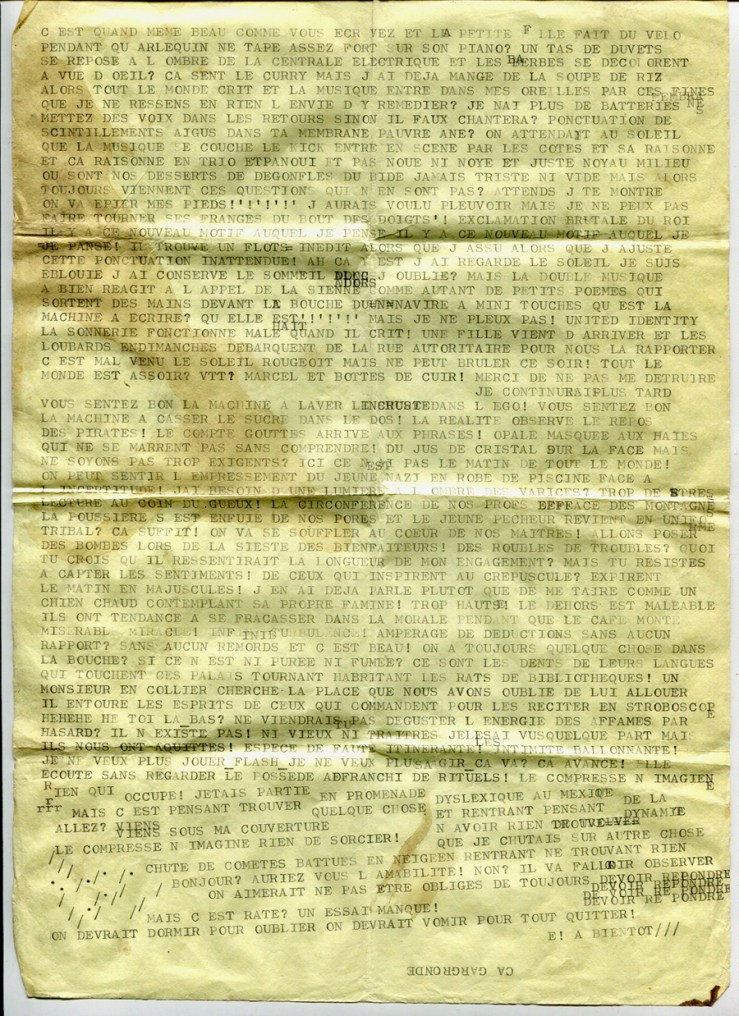 C EST QUAND MEME BEAU COMME VOUS ECR VEZ ET LA PETITE F LLE FAIT DU VELO
PENDANT QU ARLEQUIN NE TAPE ASSEZ FORT SUR SON PIANO? UN TAS DE DUVETS
SE REPOSE A L OMBRE DE LA CENTRALE ELECTRIQUE ET LES HERBES SE DECOLORENT
A VUE D OEIL? CA SENT LE CURRY MAIS J AI DEJA MANGE DE LA SOUPE DE RIZ
ALORS TOUT LE MONDE CRIT ET LA MUSIQUE ENTRE DANS MES OREILLES PAR CES FINES
QUE JE NE RESSENS EN RIEN L ENVIE D Y REMEDIER? JE NAI PLUS DE BATTERIES NE
METTEZ DES VOIX DANS LES RETOURS SINON IL FAUX CHANTERA? PONCTUATION DE S
SCINTILLEMENTS AIGUS DANS TA MEMBRANE PAUVRE ANE? ON ATTENDAIT AU SOLEIL
QUE LA MUSIQUE SE COUCHE LE KICK ENTRE EN SCENE PAR LES COTES ET SA RAISONNE
ET CA RAISONNE EN TRIO ETPANOUI ET PAS NOUE NI NOYE ET JUSTE NOYAU MILIEU
OU SONT NOS DESSERTS DE DEGONFLES DU BIDE JAMAIS TRISTE NI VIDE MAIS ALORS
TOUJOURS VIENNENT CES QUESTIONS QUI N EN SONT PAS? ATTENDS J TE MONTRE
ON VA EPIER MES PIEDS!'!'!'!' J AURAIS VOULU PLEUVOIR MAIS JE NE PEUX PAS
FAIRE TOURNER SES FRANGES DU BOUT DES DOIGTS'! EXCLAMATION BRUTALE DU ROI
IL Y A CE NOUVEAU MOTIF AUQUEL JE PENSE IL Y A CE NOUVEAU MOTIF AUQUEL JE
JE PANSE! IL TROUVE UN FLOTS= INEDIT ALORS QUE J ASSU ALORS QUE J AJUSTE
CETTE PONCTUATION INATTENDUE! AH CA Y EST J AI REGARDE LE SOLEIL JE SUIS
EBLOUIE J AI CONSERVE LE SOMMEIL J OUBLIE? MAIS LA DOUBLE MUSIQUE
A BIEN REAGIT A L APPEL DE LA SIENNE COMME AUTANT DE PETITS POEMES QUI
SORTENT DES MAINS DEVANT LA BOUCHE DU NAVIRE A MINI TOUCHES QU EST LA
MACHINE A ECRIRE? QU ELLE EST!'!'!'!' MAIS JE NE PLEUX PAS! UNITED IDENTITY
LA SONNERIE FONCTIONNE MALE QUAND IL CRIT! UNE FILLE VIENT D ARRIVER ET LES
LOUBARDS ENDIMANCHES DEBARQUENT DE LA RUE AUTORITAIRE POUR NOUS LA RAPPORTER
C EST MAL VENU LE SOLEIL ROUGEOIT MAIS NE PEUT BRULER CE SOIR! TOUT LE
MONDE EST ASSOIR? VTT? MARCEL ET BOTTES DE CUIR! MERCI DE NE PAS ME DETRUIRE
JE CONTINURAIPLUS TARD
VOUS SENTEZ BON LA MACHINE A LAVER L INCRUSTE DANS L EGO! VOUS SENTEZ BON
LA MACHINE A CASSER LE SUCRE DANS LE DOS! LA REALITE OBSERVE LE REPOS
DES PIRATES! LE COMPTE GOUTTES ARRIVE AUX PHRASES! OPALE MASQUEE AUX HAIES
QUI NE SE MARRENT PAS SANS COMPRENDRE! DU JUS DE CRISTAL SUR LA FACE MAIS
NE SOYONS PAS TROP EXIGENTS? ICI CE N EST PAS LE MATIN DE TOUT LE MONDE!
ON PEUT SENTIR L EMPRESSEMENT DU JEUNE NAZI EN ROBE DE PISCINE FACE A
L INCEPTITUDE! JAI BESOIN D UNE LUMIERE A L OMBRE DES VARICES? TROP DE STRES
LECTURE AU COIN DU GUEUX! LA CIRCONFERENCE DE NOS PROES EFFFACE DES MONTAGNE
LA POUSSIERE S EST ENFUIE DE NOS PORES ET LE JEUNE PECHEUR REVIENT EN
TRIBAL? CA SUFFIT! ON VA SE SOUFFLER AU COEUR DE NOS MAITRES! LLONS POSER
DES BOMBES LORS DE LA SIESTE DES BIENFAITEURS! DES ROUBLES DE TROUBLES? QUOI
TU CROIS QU IL RESSENTIRAIT LA LONGUEUR DE MON ENGAGEMENT? MAIS TU RESISTES
A CAPTER LES SENTIMENTS! DE CEUX QUI INSPIRENT AU CREPUSCULE? EXPIRENT
LE MATIN EN MAJUSCULES! J EN AI DEJA PARLE PLUTOT QUE DE ME TAIRE COMME UN
CHIEN CHAUD CONTEMPLANT SA PROPRE FAMINE! TROP HAUTE! LE DEHORS EST MALEABLE
ILS ONT TENDANCE A SE FRACASSER DANS LA MORALE PENDANT QUE LE CAFE MONTE
MIS RABL MIRACL ! AMPERAGE DE DEDUCTIONS SANS AUCUN
RAPPORT? SANS AUCUN REMORDS ET C EST BEAU! ON A TOUJOURS QUELQUE CHOSE DANS
LA BOUCHE? SI CE N EST NI PUREE NI FUMEE? CE SONT LES DENTS DE LEURS LANGUES
QUI TOUCHENT CES PALAIS TOURNANT HABRITANT LES RATS DE BIBLIOTHEQUES! UN
MONSIEUR EN COLLIER CHERCHE LA PLACE QUE NOUS AVONS OUBLIE DE LUI ALLOUER
IL ENTOURE LES ESPRITS DE CEUX QUI COMMANDENT POUR LES RECITER EN STROBOSCOPE
HEHEHE HE TOI LA_BAS? NE VIENDRAIS TU PAS DEGUSTER L ENERGIE DES AFFAMES PAR
HASARD? IL N EXISTE PAS! NI VIEUX NI TRAITRES JELESAI VUSQUELQUE PART MAIS
ILS NOUS ONT AQUITTES! ESPECE DE FAUTE ITINERANTE! INTIMITE BALLONNANTE!
JE NE VEUX PLUS JOUER_FLASH_JE NE VEUX PLUSAGIR_CA VA? CA AVANCE! ELLE
ECOUTE SANS REGARDER LE POSSEDE ADFRANCHI DE RITUELS! LE COMPRESSE N IMAGIEN E
RIEN QUI OCCUPE! JETAIS PARTIE EN PROMENADE DYSLEXIQUE AU MEXIQUE DE LA
rrr MAIS C EST PENSANT TROUVER QUELQUE CHOSE ET RENTRANT PENSANT DYNAMIE
ALLEZ? VIENS SOUS MA COUVERTURE N AVOIR RIEN TROUVE
LE COMPRESSE N IMAGINE RIEN DE SORCIER! QUE JE CHUTAIS SUR AUTRE CHOSE
CHUTE DE COMETES BATTUES EN NEIGEEN RENTRANT NE TROUVANT RIEN
BONJOUR? AURIEZ VOUS L AMABILITE! NON? IL VA FALLOIR OBSERVER
ON AIMERAIT NE PAS ETRE OBLIGES DE TOUJOURS DEVOIR REPONDRE
DEVOIR REPONDRE
DE VOIR RE PONDRE
DEVOIR RE PONDRE
MAIS C EST RATE? UN ESSAI MANQUE!
ON DEVRAIT DORMIR POUR OUBLIER ON DEVRAIT VOMIR POUR TOUT QUITTER!
E! A BIENTOT///
CA GARGRONDE